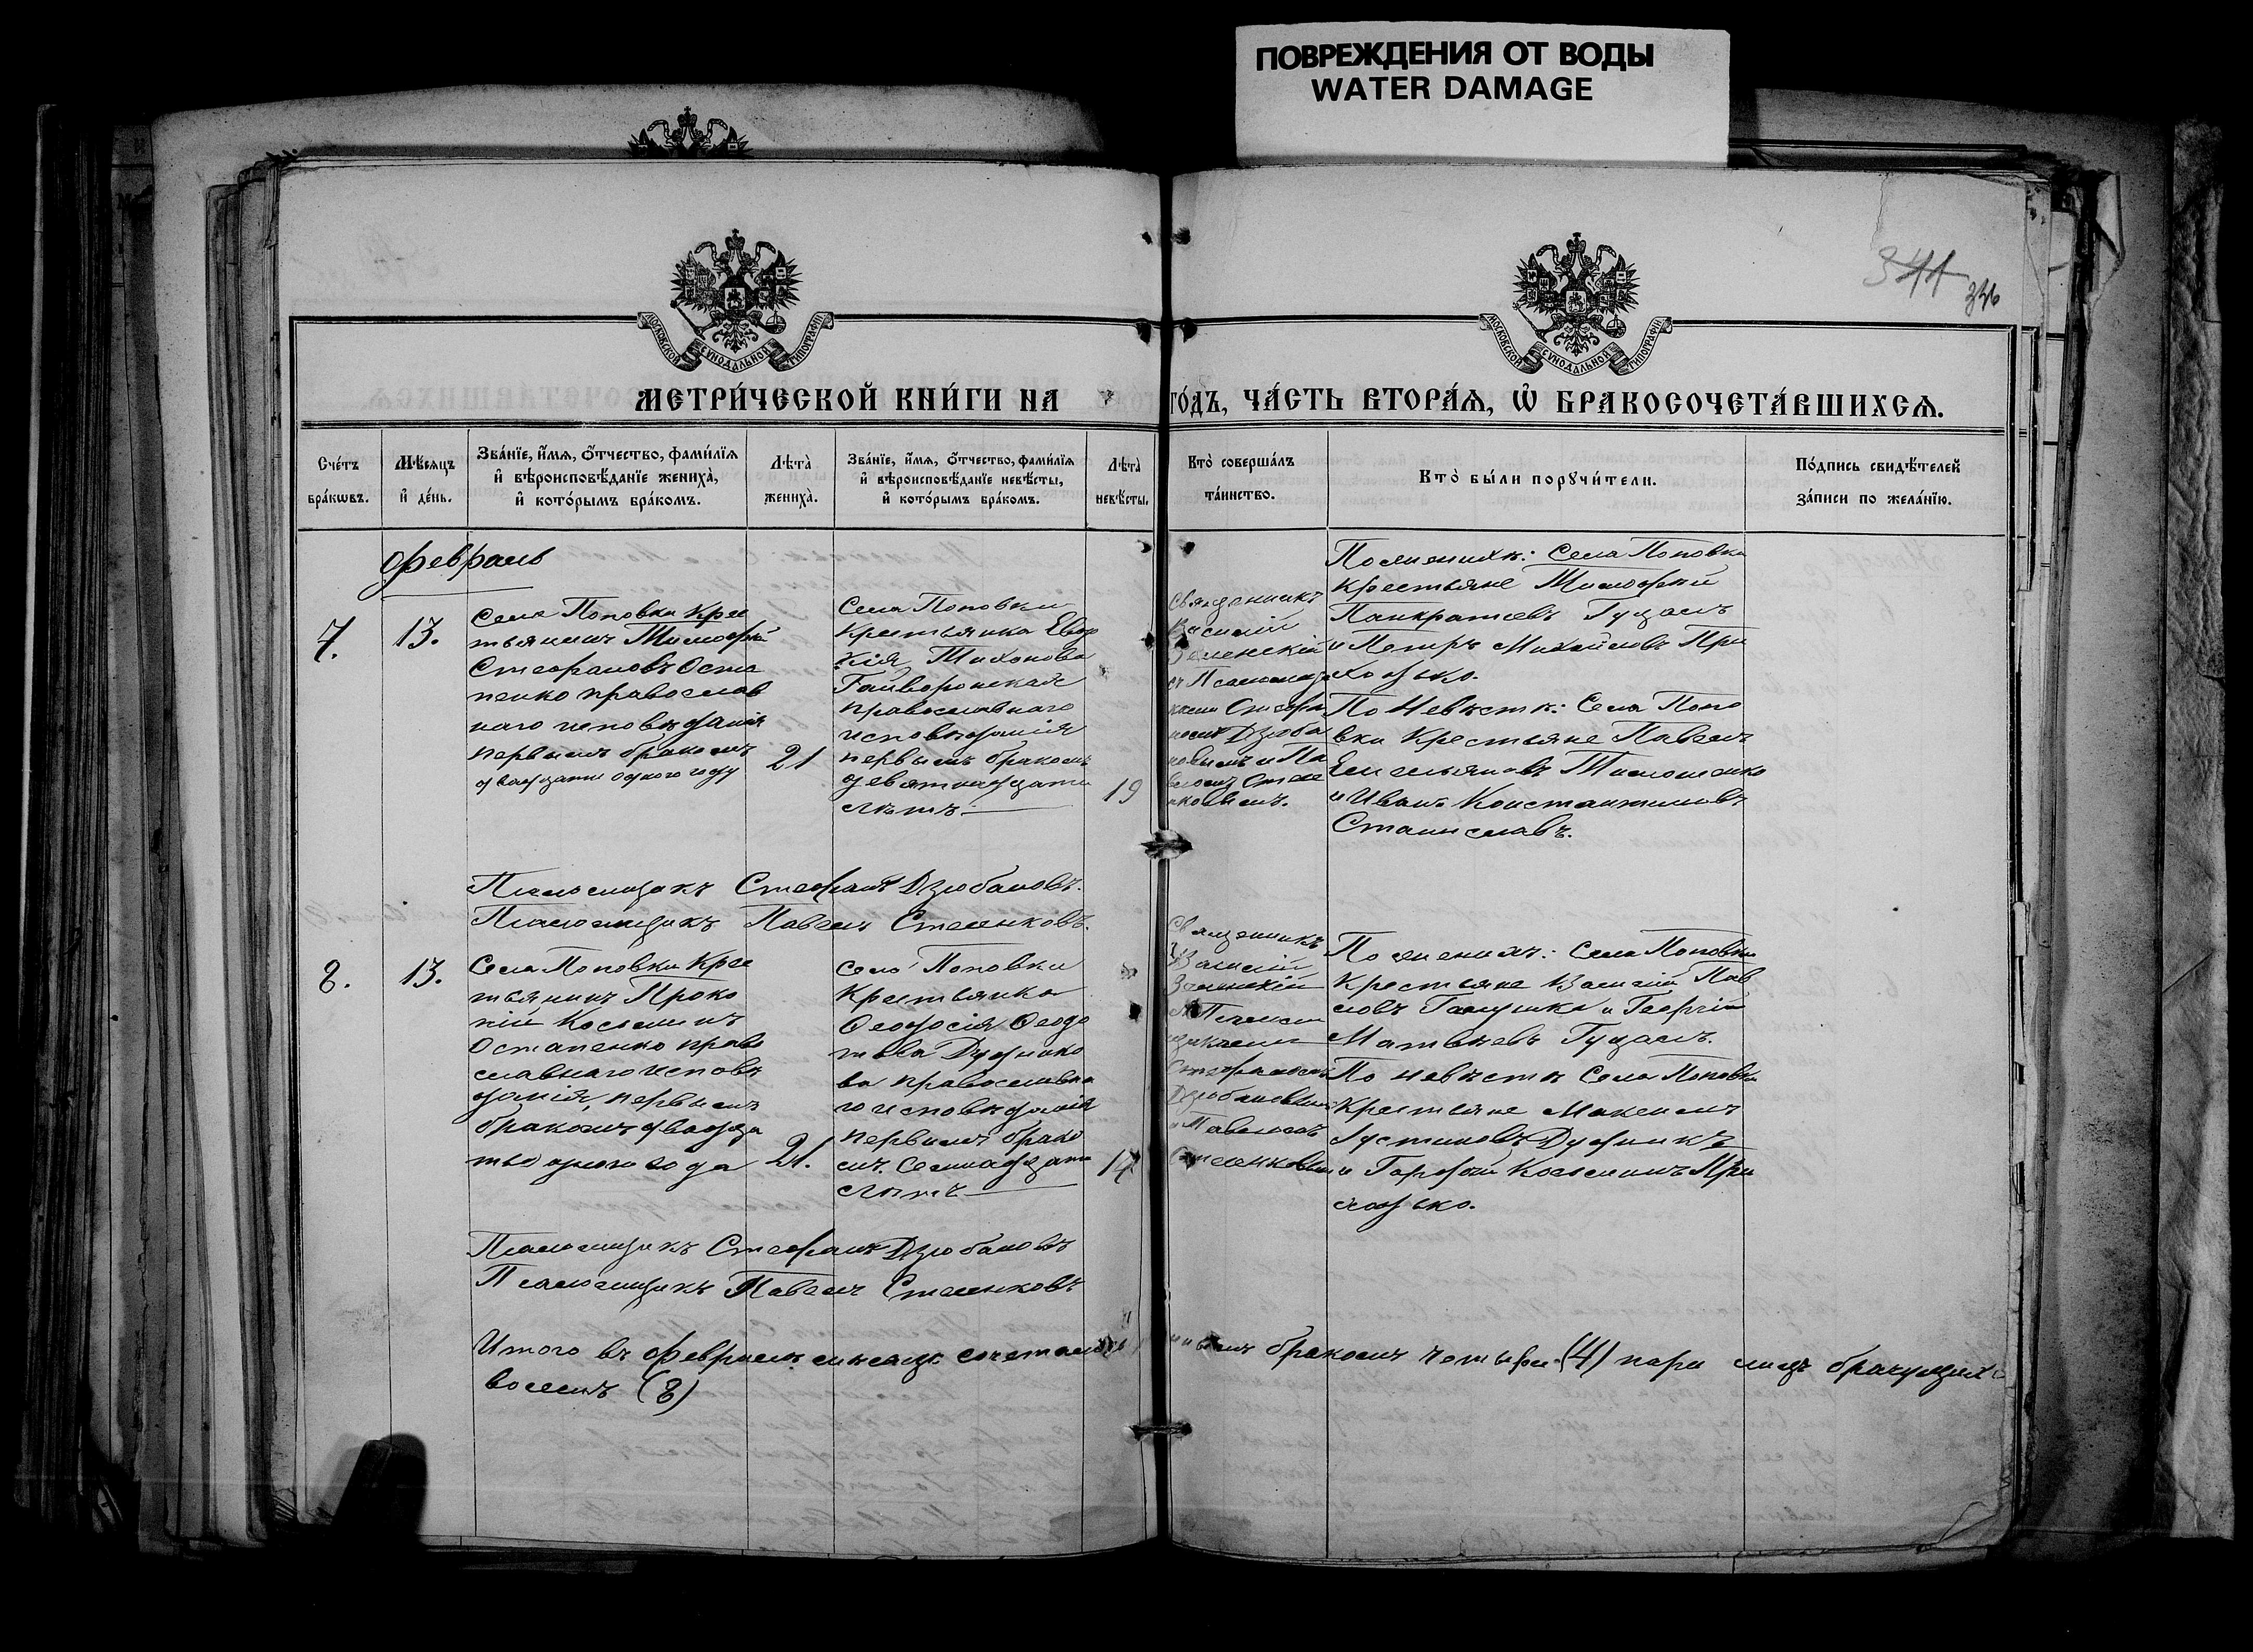 ПОВРЕЖДЕНИЯ ОТ ВОДЫ
WATER DAMAGE
МОСКОВСКОЙ СѴНОДАЛЬНОЙ ТИПОГРАФІИ
МОСКОВСКОЙ СѴНОДАЛЬНОЙ ТИПОГРАФІИ
341
336
МЕТРИ́ЧЕСКОЙ КНИ́ГИ НА
ГО́ДЪ, ЧА́СТЬ ВТОРА́Ѧ, Ѽ БРАКОСОЧЕТА́ВШИХСѦ.
Сче́тъ бра́кѡвъ.
Мѣ́сяцъ и҆ де́нь.
Зва́нїе, и҆́мѧ, ѻ҆́тчество, фами́лїѧ
и҆ вѣроисповѣ́данїе жениха̀,
и҆ кото́рымъ бра́комъ.
Лѣта̀ жениха̀.
Зва́нїе, и҆́мѧ, ѻ҆́тчество, фами́лїѧ
и҆ вѣроисповѣ́данїе невѣ́сты,
и҆ кото́рымъ бра́комъ.
Лѣта̀ невѣ́сты.
Кто̀ соверша́лъ та́инство.
Кто̀ бы́ли порꙋчи́тели.
По́дпись свидѣ́телей
за́писи по жела́нїю.
Февраль
7.
13.
Села Поповки Кре
стьянинъ Тимофей
Стефановъ Оста
пенко православ
наго исповѣданія
первымъ бракомъ
двадцати одного году
21
Села Поповки
Крестьянка Евдо
кія Тихонова
Гайворонская
православнаго
исповѣданія
первымъ бракомъ
девятнадцати
лѣтъ.
19
Священникъ
Василій
Зеленскій
съ Псаломщи
ками Стефа
номъ Дзюба
новымъ и Па
вломъ Стеле
нковымъ.
По женихѣ: Села Поповки
крестьяне Тимофей
Панкратіевъ Гуцалъ
и Петръ Михайловъ При
ходько.
По Невѣстѣ: Села Попо
вки Крестьяне Павелъ
Емельяновъ Тимошенко
и Иванъ Константиновъ
Станиславъ.
Псаломщикъ Стефанъ Дзюбановъ.
Псаломщикъ Павелъ Стеленковъ.
8.
13.
Села Поповки Кре
стьянинъ Проко
пій Косьминъ
Остапенко право
славнаго исповѣ
данія, первымъ
бракомъ двадца
ти одного года
21.
Села Поповки
Крестьянка
Ѳеодосія Ѳеодо
това Дудника
ва православна
го исповѣданія
первымъ брако
мъ. Семнадцати
лѣтъ
17
Священникъ
Василій
Зеленскій
съ Псалом
щиками
Стефаномъ
Дзюбановымъ
и Павломъ
Стеленковым
По женихѣ: Села Поповки
Крестьяне Василій Пав
ловъ Галушка и Георгій
Матвѣевъ Гуцалъ.
По невѣстѣ Села Поповки
Крестьяне Максимъ
Іустиновъ Дудникъ
и Гордѣй Косьминъ При
ходько.
Псаломщикъ Стефанъ Дзюбановъ
Псаломщикъ Павелъ Стеленковъ
Итого въ Февралѣ мѣсяцѣ сочеталось
бракомъ четыре (4) пары лицъ брачущихся
восемь (8)